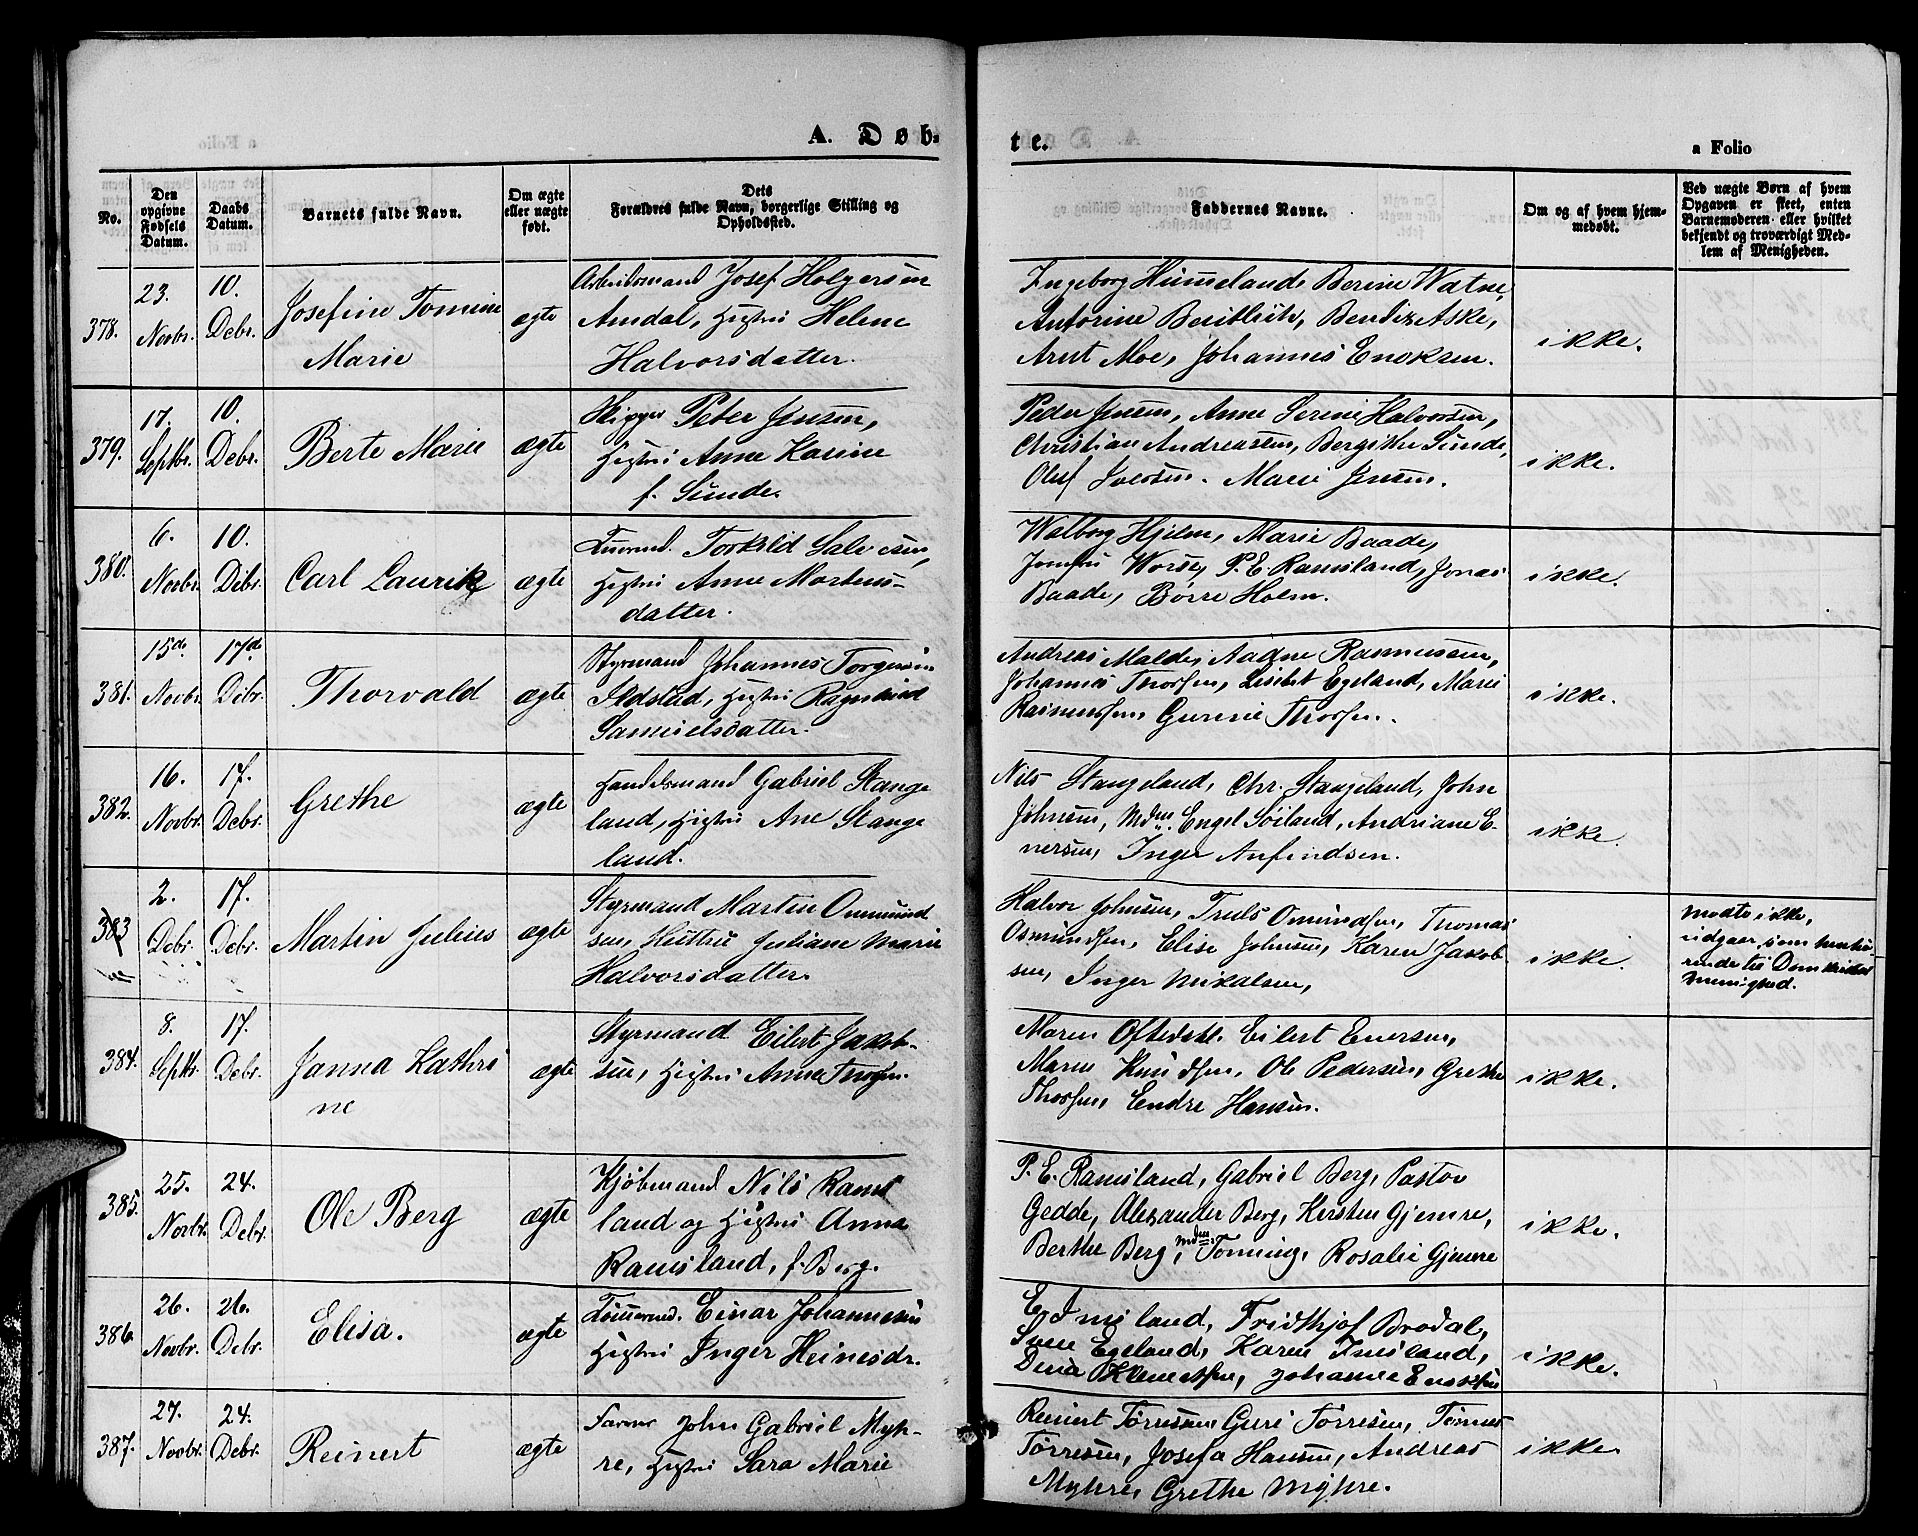 A. Døb-
te.
a Folio
No.
Den opgivne Fødsels Datum.
Daabs Datum.
Barnets fulde Navn.
Om ægte eller uægte født.
Dets Forældres fulde Navn, borgerlige Stilling og Opholdssted.
Faddernes Navne.
Om og af hvem hjemmedøbt.
Ved uægte Børn af hvem Opgaven er skeet, enten Barnemoderen eller hvilket bekjendt og troværdigt Medlem af Menigheden.
378.
23. Novbr.
10. Debr.
Josefine Tomine
Marie
ægte
Arbeidsmand Josef Holgersen
Amdal, Hustru Helene
Halvorsdatter.
Ingeborg Hummeland, Berine Watne,
Antorine Bentlich, Bendix Aske,
Arnt Moe, Johannes Enoksen.
ikke.
379.
17. Septbr.
10. Debr.
Berte Marie
ægte
Skipper Peter Jensen,
Hustru Anne Karine
f. Sunde.
Peder Jensen, Anne Serine Halvorsen,
Christian Andreassen, Bergithe Sunde,
Oluf Iversen. Marie Jensen.
ikke.
380.
6. Novbr.
10. Debr.
Carl Laurik
ægte
Torkild Salvesen,
Hustru Anne Mortens-
datter.
Walborg Hjelm, Marie Baade,
Jomfru Worse, P. E. Ramsland, Jonas
Baade, Børre Holm.
ikke.
381.
15de Novbr.
17de Debr.
Thorvald
ægte
Styrmand Johannes Torgersen
Ildstad, Hustru Ragnhild
Samuelsdatter.
Andreas Malde, Aadne Rasmussen,
Johannes Thorsen, Lisbet Egeland, Marie
Rasmussen, Gurine Thorsen.
ikke.
382.
16. Novbr.
17. Debr.
Grethe
ægte
Handelsmand Gabriel Stange
land, Hustru Ane Stange
land.
Nils Stangeland, Chr. Stangeland, John
Johnsen, Mdm Engel Soiland, Andriane E-
nersen, Inger Anfindsen.
ikke.
383
2. Debr.
17. Debr.
Martin Julius
ægte
Styrmand Martin Ommund
sen, Hustru Juliane Marie
Halvorsdatter.
Halvor Johnsen, Truls Omundsen, Thomas
Osmundsen, Elise Johnsen, Karen Jacob-
sen, Inger Mikalsen,
ikke.
Mødte ikke,
udgaer som henhø-
rende til Domkirkens
Menighed.
384.
8. Septbr.
17. Debr.
Janna Kathri
ne
ægte
Styrmand Eilert Jakob-
sen, Hustru Anna
Maren Oftedahl. Eilert Enersen,
Maren Knudsen, Ole Pedersen, Grethe
Thorsen, Endre Hansen.
ikke.
385.
25. Novbr.
24. Debr.
Ole Berg
ægte
Kjøbmand Nils Rams
land og Hustru Anna
Ramsland, f. Berg.
P. E. Ramsland, Gabriel Berg, Pastor
Gedde, Alexander Berg, Kersten Gjemre,
Berthe Berg, Mdm Tonning, Rosalie Gjemre
ikke.
386.
26. Novbr.
26. Debr.
Elisa.
ægte
Tømmermd. Einar Johannesen
Hustru Inger Heinesdr.
E. Imsland, Fridthjof Brodal,
Sven Egeland, Karen Imsland,
Dina Klemetsen, Johanne Enoksen
ikke.
387.
27. Novbr.
24. Debr.
Reinert
ægte
Farver John Gabriel Myh-
re, Hustru Sara Marie
Reinert Tørresen, Guri Tørresen, Tønnes
Tørresen, Josefa Hansen, Andreas
Myhre, Grethe Myhre.
ikke.